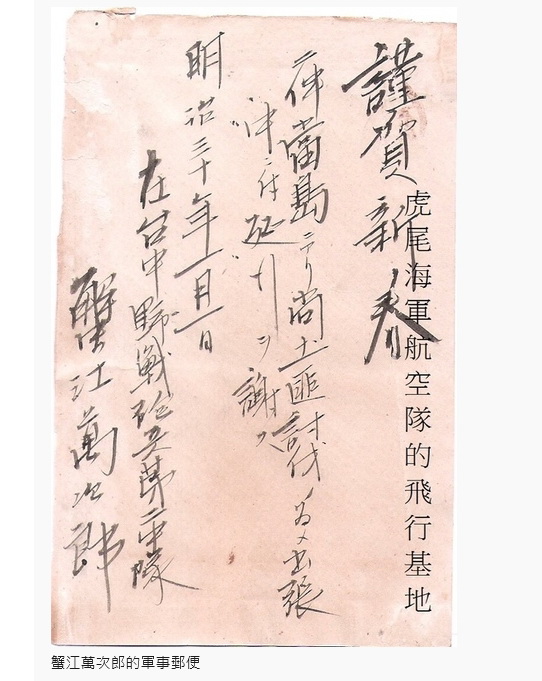 虎尾海軍航空隊的飛行基地
謹賀新春
當島ニテ尚土匪討伐ノ為メ出張
ニ付延引ヲ謝ス
明治三十年一月一日
在台中野戰砲兵第二中隊
蟹江萬次郎
蟹江萬次郎的軍事郵便